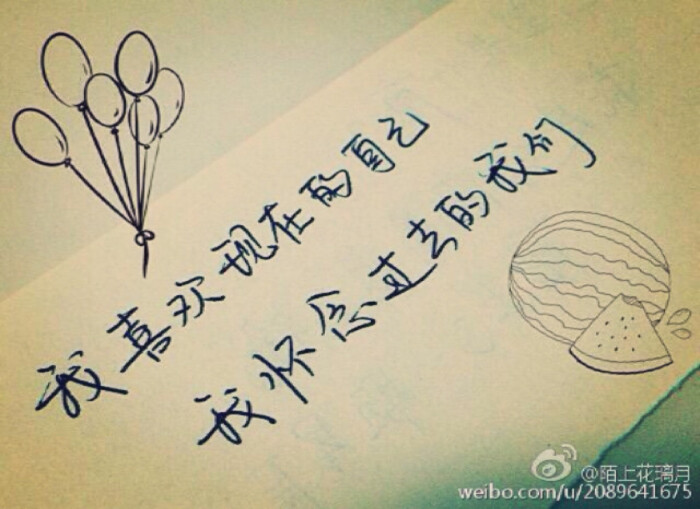 我喜欢现在的自己
我怀念过去的我们
@陌上花璃月
weibo.com/u/2089641675